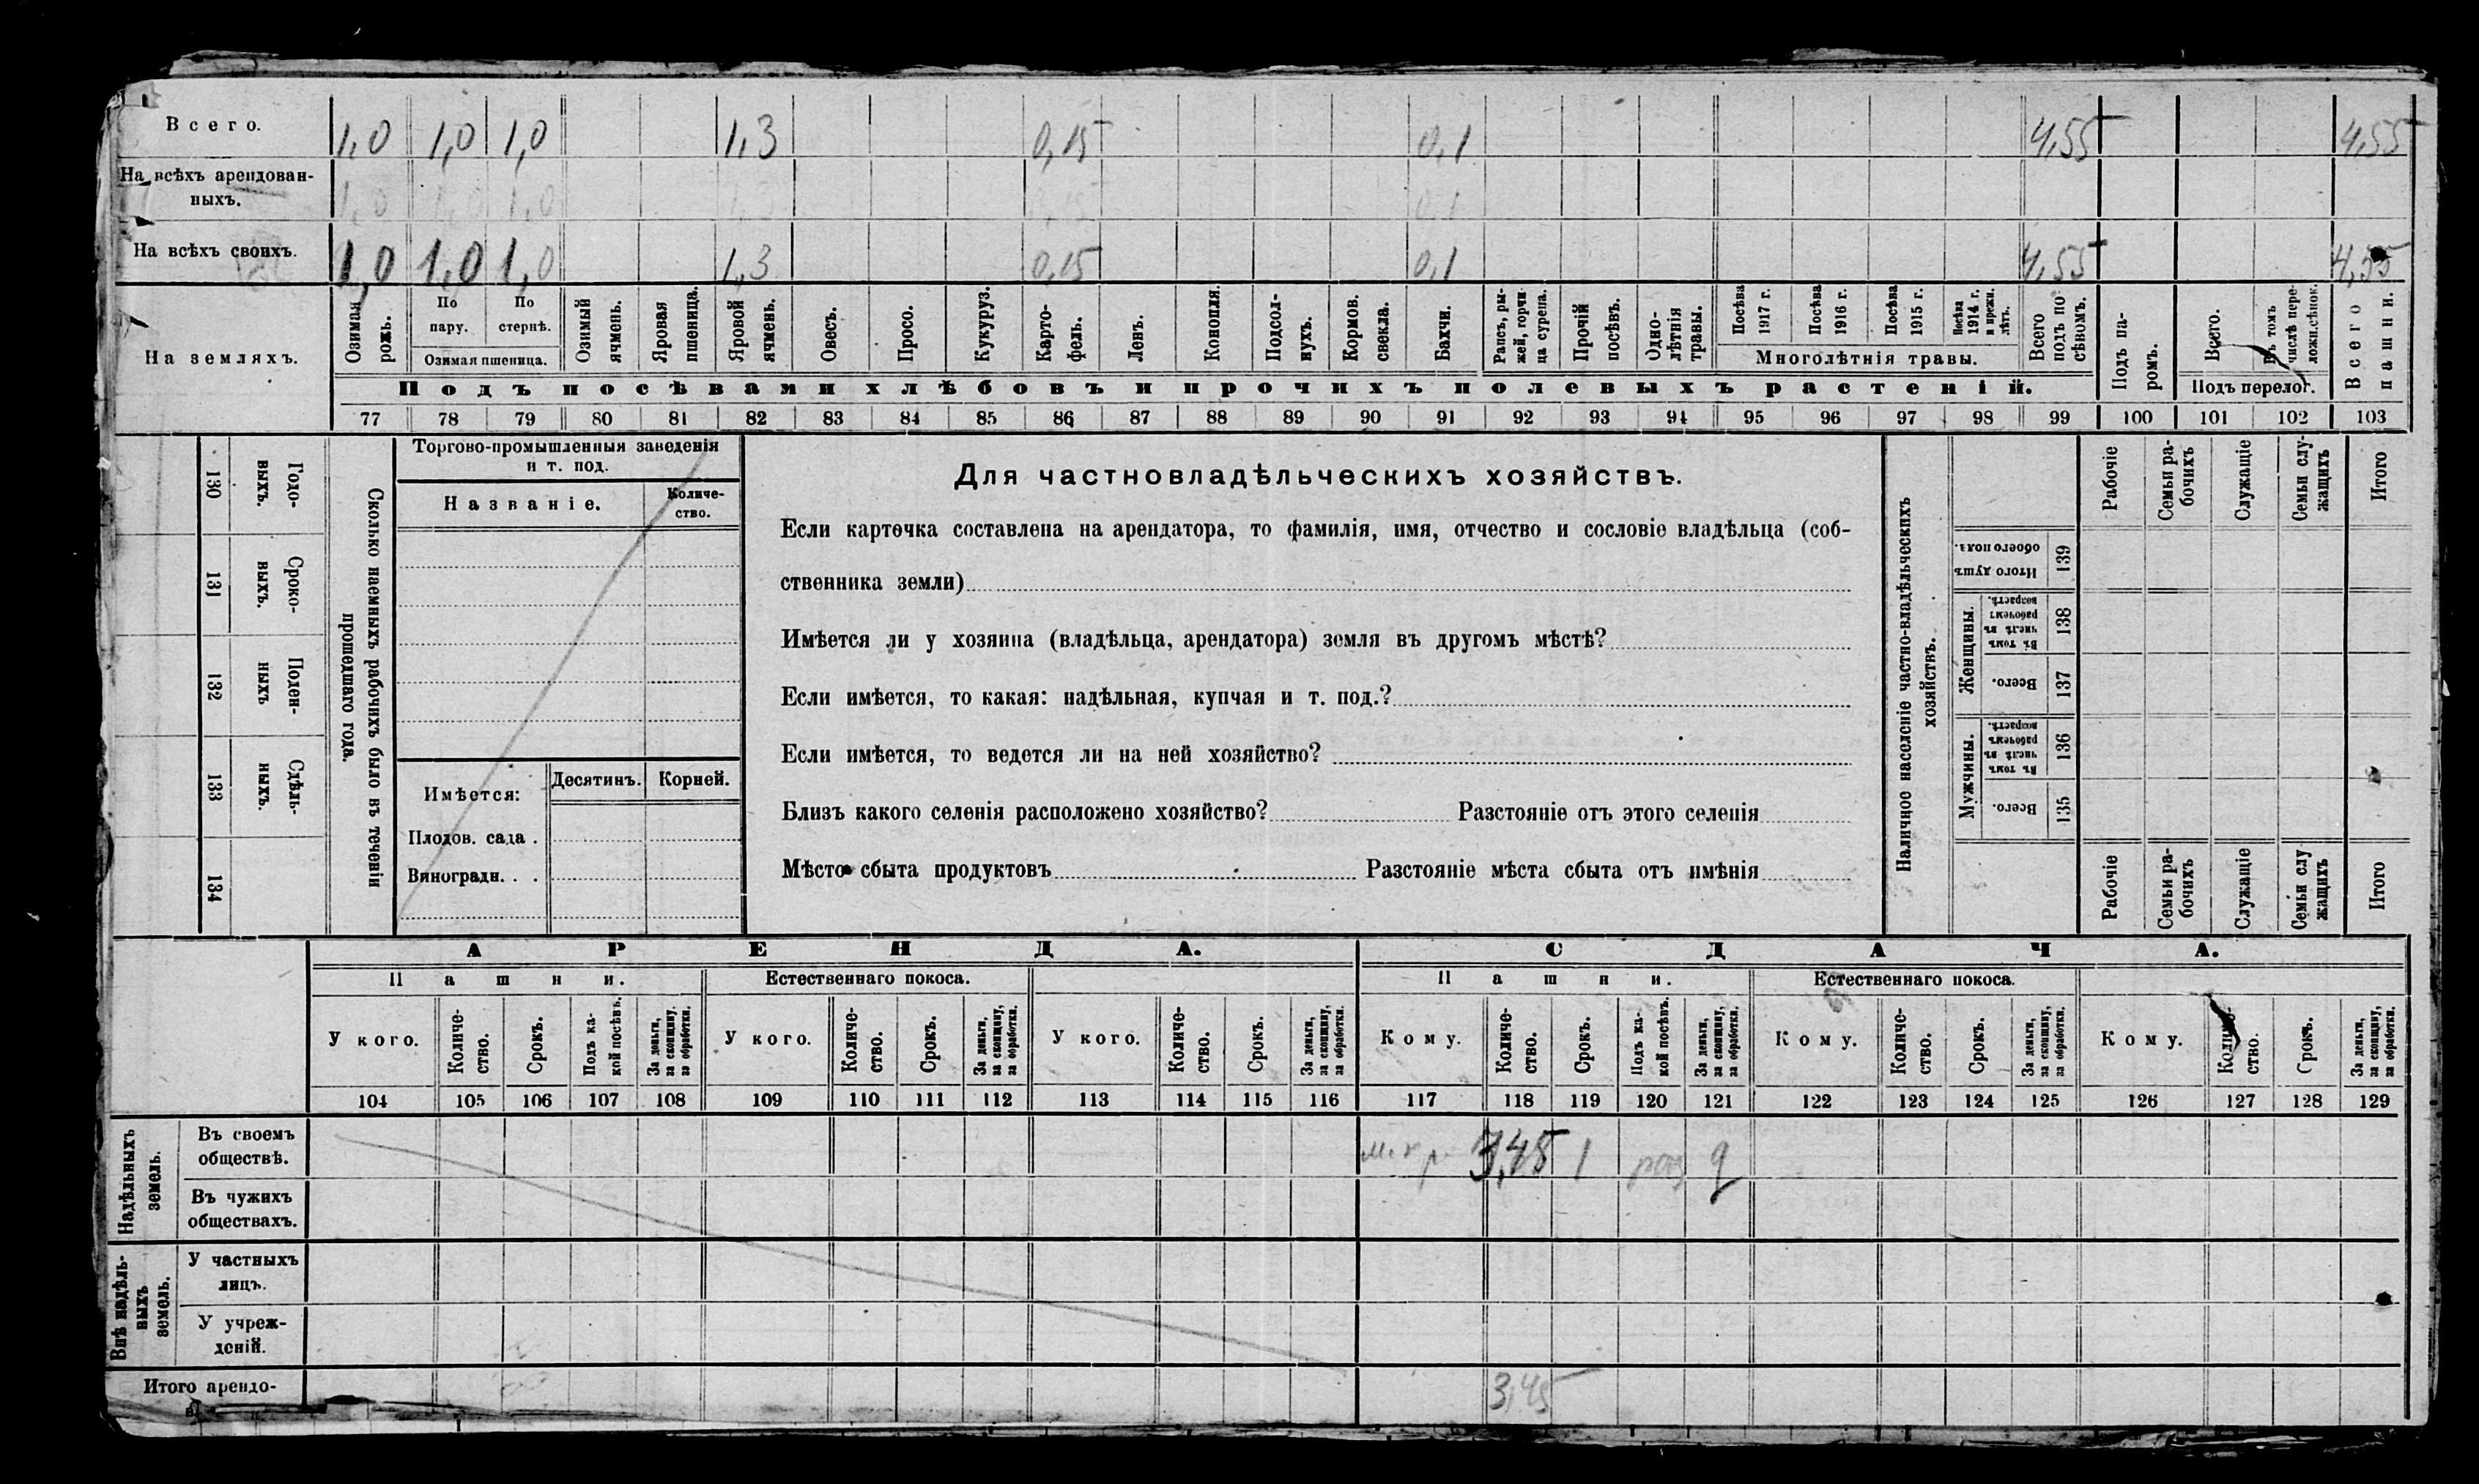 Всего. 1,0 1,0 1,0 1,3 0,15 0,1 4,55 4,55
На всѣхъ арендован-
ныхъ. 1,0 1,0 1,0 1,3 0,15 0,1
На всѣхъ своихъ. 1,0 1,0 1,0 1,3 0,15 0,1 4,55 4,55
На земляхъ.
Озимая
рожь.
По
пару.
По
стернѣ.
Озимая пшеница.
Озимый
ячмень.
Яровая
пшеница.
Яровой
ячмень.
Овесъ.
Просо.
Кукуруз.
Карто-
фель.
Ленъ.
Конопля.
Подсол-
нухъ.
Кормов.
свекла.
Бахчи.
Рапсъ, ры-
жей, горчи
ца сурепа.
Прочій
посѣвъ.
Одно-
лѣтнія
травы.
Посѣва
1917 г.
Посѣва
1916 г.
Посѣва
1915 г.
Посѣва
1914 г.
и прежн.
лѣтъ.
Многолѣтнія травы.
Всего
подъ по
сѣвомъ.
Подъ па-
ромъ.
Всего.
Въ томъ
числѣ пере-
ложн.сѣнок.
Подъ перелог.
Всего
пашни.
Подъ посѣвами хлѣбовъ и прочихъ полевыхъ растеній.
77 78 79 80 81 82 83 84 85 86 87 88 89 90 91 92 93 94 95 96 97 98 99 100 101 102 103
130
Годо-
выхъ.
131
Сроко-
выхъ.
132
Поден-
ныхъ
133
Сдѣль-
ныхъ.
134
Сколько наемныхъ рабочихъ было въ теченіи
прошедшаго года.
Торгово-промышленныя заведенія
и т. под.
Названіе.
Количе-
ство.
Имѣется:
Десятинъ. Корней.
Плодов. сада .
Виноградн. . .
Для частновладѣльческихъ хозяйствъ.
Если карточка составлена на арендатора, то фамилія, имя, отчество и сословіе владѣльца (соб-
ственника земли)
Имѣется ли у хозяина (владѣльца, арендатора) земля въ другомъ мѣстѣ?
Если имѣется, то какая: надѣльная, купчая и т. под.?
Если имѣется, то ведется ли на ней хозяйство?
Близъ какого селенія расположено хозяйство? Разстояніе отъ этого селенія
Мѣсто сбыта продуктовъ Разстояніе мѣста сбыта отъ имѣнія
Наличное населеніе частно-владѣльческихъ
хозяйствъ.
Рабочіе
Семьи ра-
бочихъ
Служащіе
Семьи слу-
жащихъ
Итого
Итого душъ
обоего пола.
139
Женщины.
Въ томъ
числѣ въ
рабочемъ
возрастѣ.
138
Всего.
137
Мужчины.
Въ томъ
числѣ въ
рабочемъ
возрастѣ.
136
Всего.
135
Рабочіе
Семьи ра-
бочихъ
Служащіе
Семьи слу
жащихъ
Итого
АРЕНДА.
СДАЧА.
Пашни.
Естественнаго покоса.
Пашни.
Естественнаго покоса.
У кого.
Количе-
ство.
Срокъ.
Подъ ка-
кой посѣвъ.
За деньги,
за скопщину,
за обработки.
У кого.
Количе-
ство.
Срокъ.
За деньги,
за скопщину,
за обработки.
У кого.
Количе-
ство.
Срокъ.
За деньги,
за скопщину,
за обработки.
Кому.
Количе-
ство.
Срокъ.
Подъ ка-
кой посѣвъ.
За деньги,
за скопщину,
за обработки.
Кому.
Количе-
ство.
Срокъ.
За деньги,
за скопщину,
за обработки.
Кому.
Количе-
ство.
Срокъ.
За деньги,
за скопщину,
за обработки.
104 105 106 107 108 109 110 111 112 113 114 115 116 117 118 119 120 121 122 123 124 125 126 127 128 129
Надѣльныхъ
земель.
Въ своемъ
обществѣ.
3,45 1
Въ чужихъ
обществахъ.
Внѣ надѣль-
ныхъ
земель.
У частныхъ
лицъ.
У учреж-
деній.
Итого арендо-
3,45